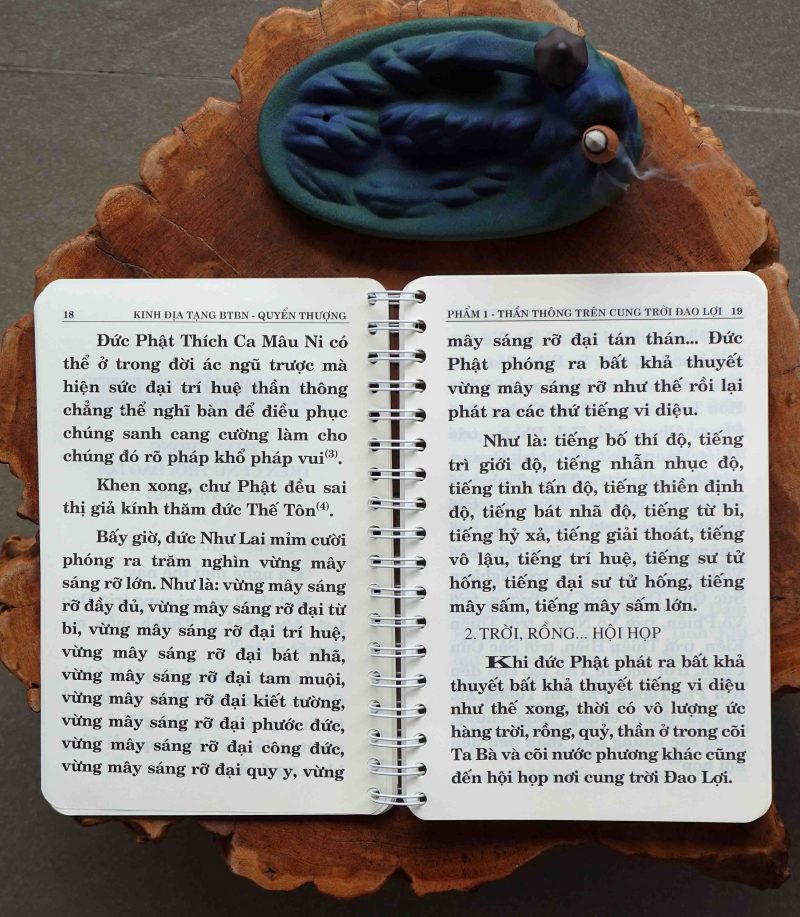 18 KINH ĐỊA TẠNG BTBN - QUYỂN THƯỢNG
Đức Phật Thích Ca Mâu Ni có
thể ở trong đời ác ngũ trược mà
hiện sức đại trí huệ thần thông
chẳng thể nghĩ bàn để điều phục
chúng sanh cang cường làm cho
chúng đó rõ pháp khổ pháp vui(3).
Khen xong, chư Phật đều sai
thị giả kính thăm đức Thế Tôn(4).
Bấy giờ, đức Như Lai mỉm cười
phóng ra trăm nghìn vừng mây
sáng rỡ lớn. Như là: vừng mây sáng
rỡ đầy đủ, vừng mây sáng rỡ đại từ
bi, vừng mây sáng rỡ đại trí huệ,
vừng mây sáng rỡ đại bát nhã,
vừng mây sáng rỡ đại tam muội,
vừng mây sáng rỡ đại kiết tường,
vừng mây sáng rỡ đại phước đức,
vừng mây sáng rỡ đại công đức,
vừng mây sáng rỡ đại quy y, vừng
PHẨM 1 - THẦN THÔNG TRÊN CUNG TRỜI ĐAO LỢI 19
mây sáng rỡ đại tán thán... Đức
Phật phóng ra bất khả thuyết
vừng mây sáng rỡ như thế rồi lại
phát ra các thứ tiếng vi diệu.
Như là: tiếng bố thí độ, tiếng
trì giới độ, tiếng nhẫn nhục độ,
tiếng tinh tấn độ, tiếng thiền định
độ, tiếng bát nhã độ, tiếng từ bi,
tiếng hỷ xả, tiếng giải thoát, tiếng
vô lậu, tiếng trí huệ, tiếng sư tử
hống, tiếng đại sư tử hống, tiếng
mây sấm, tiếng mây sấm lớn.
2. TRỜI, RỒNG... HỘI HỌP
Khi đức Phật phát ra bất khả
thuyết bất khả thuyết tiếng vi diệu
như thế xong, thời có vô lượng ức
hàng trời, rồng, quỷ, thần ở trong cõi
Ta Bà và cõi nước phương khác cũng
đến hội họp nơi cung trời Đao Lợi.